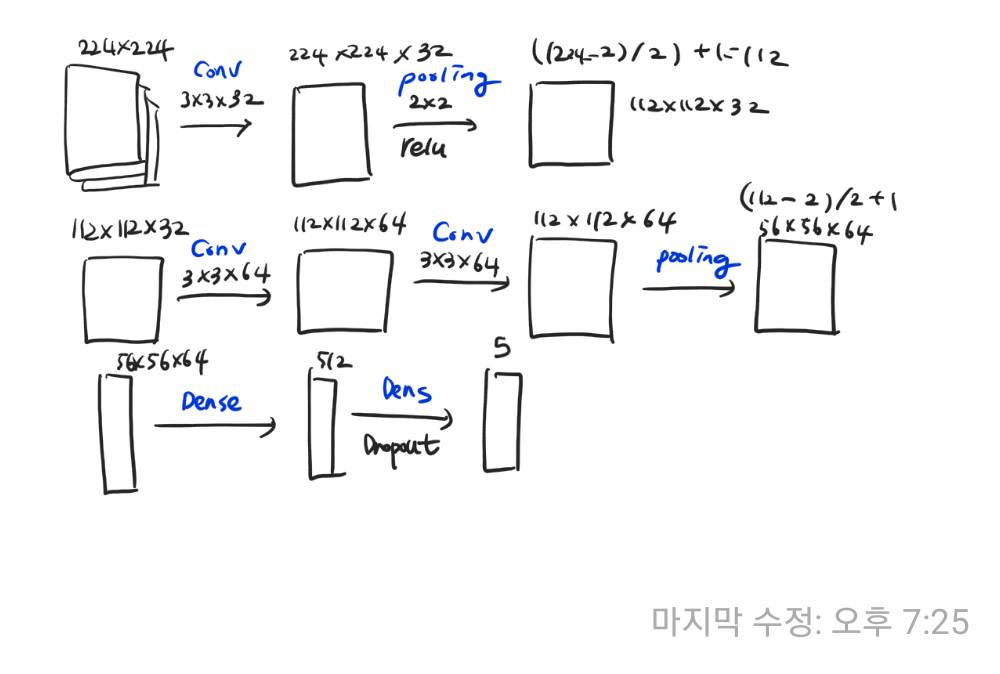 224×224
Conv
3×3×32
224×224×32
pooling
2×2
relu
((224-2)/2)+1=112
112×112×32
112×112×32
Conv
3×3×64
112×112×64
Conv
3×3×64
112×112×64
pooling
(112-2)/2+1
56×56×64
56×56×64
Dense
512
Dens
Dropout
5
마지막 수정: 오후 7:25